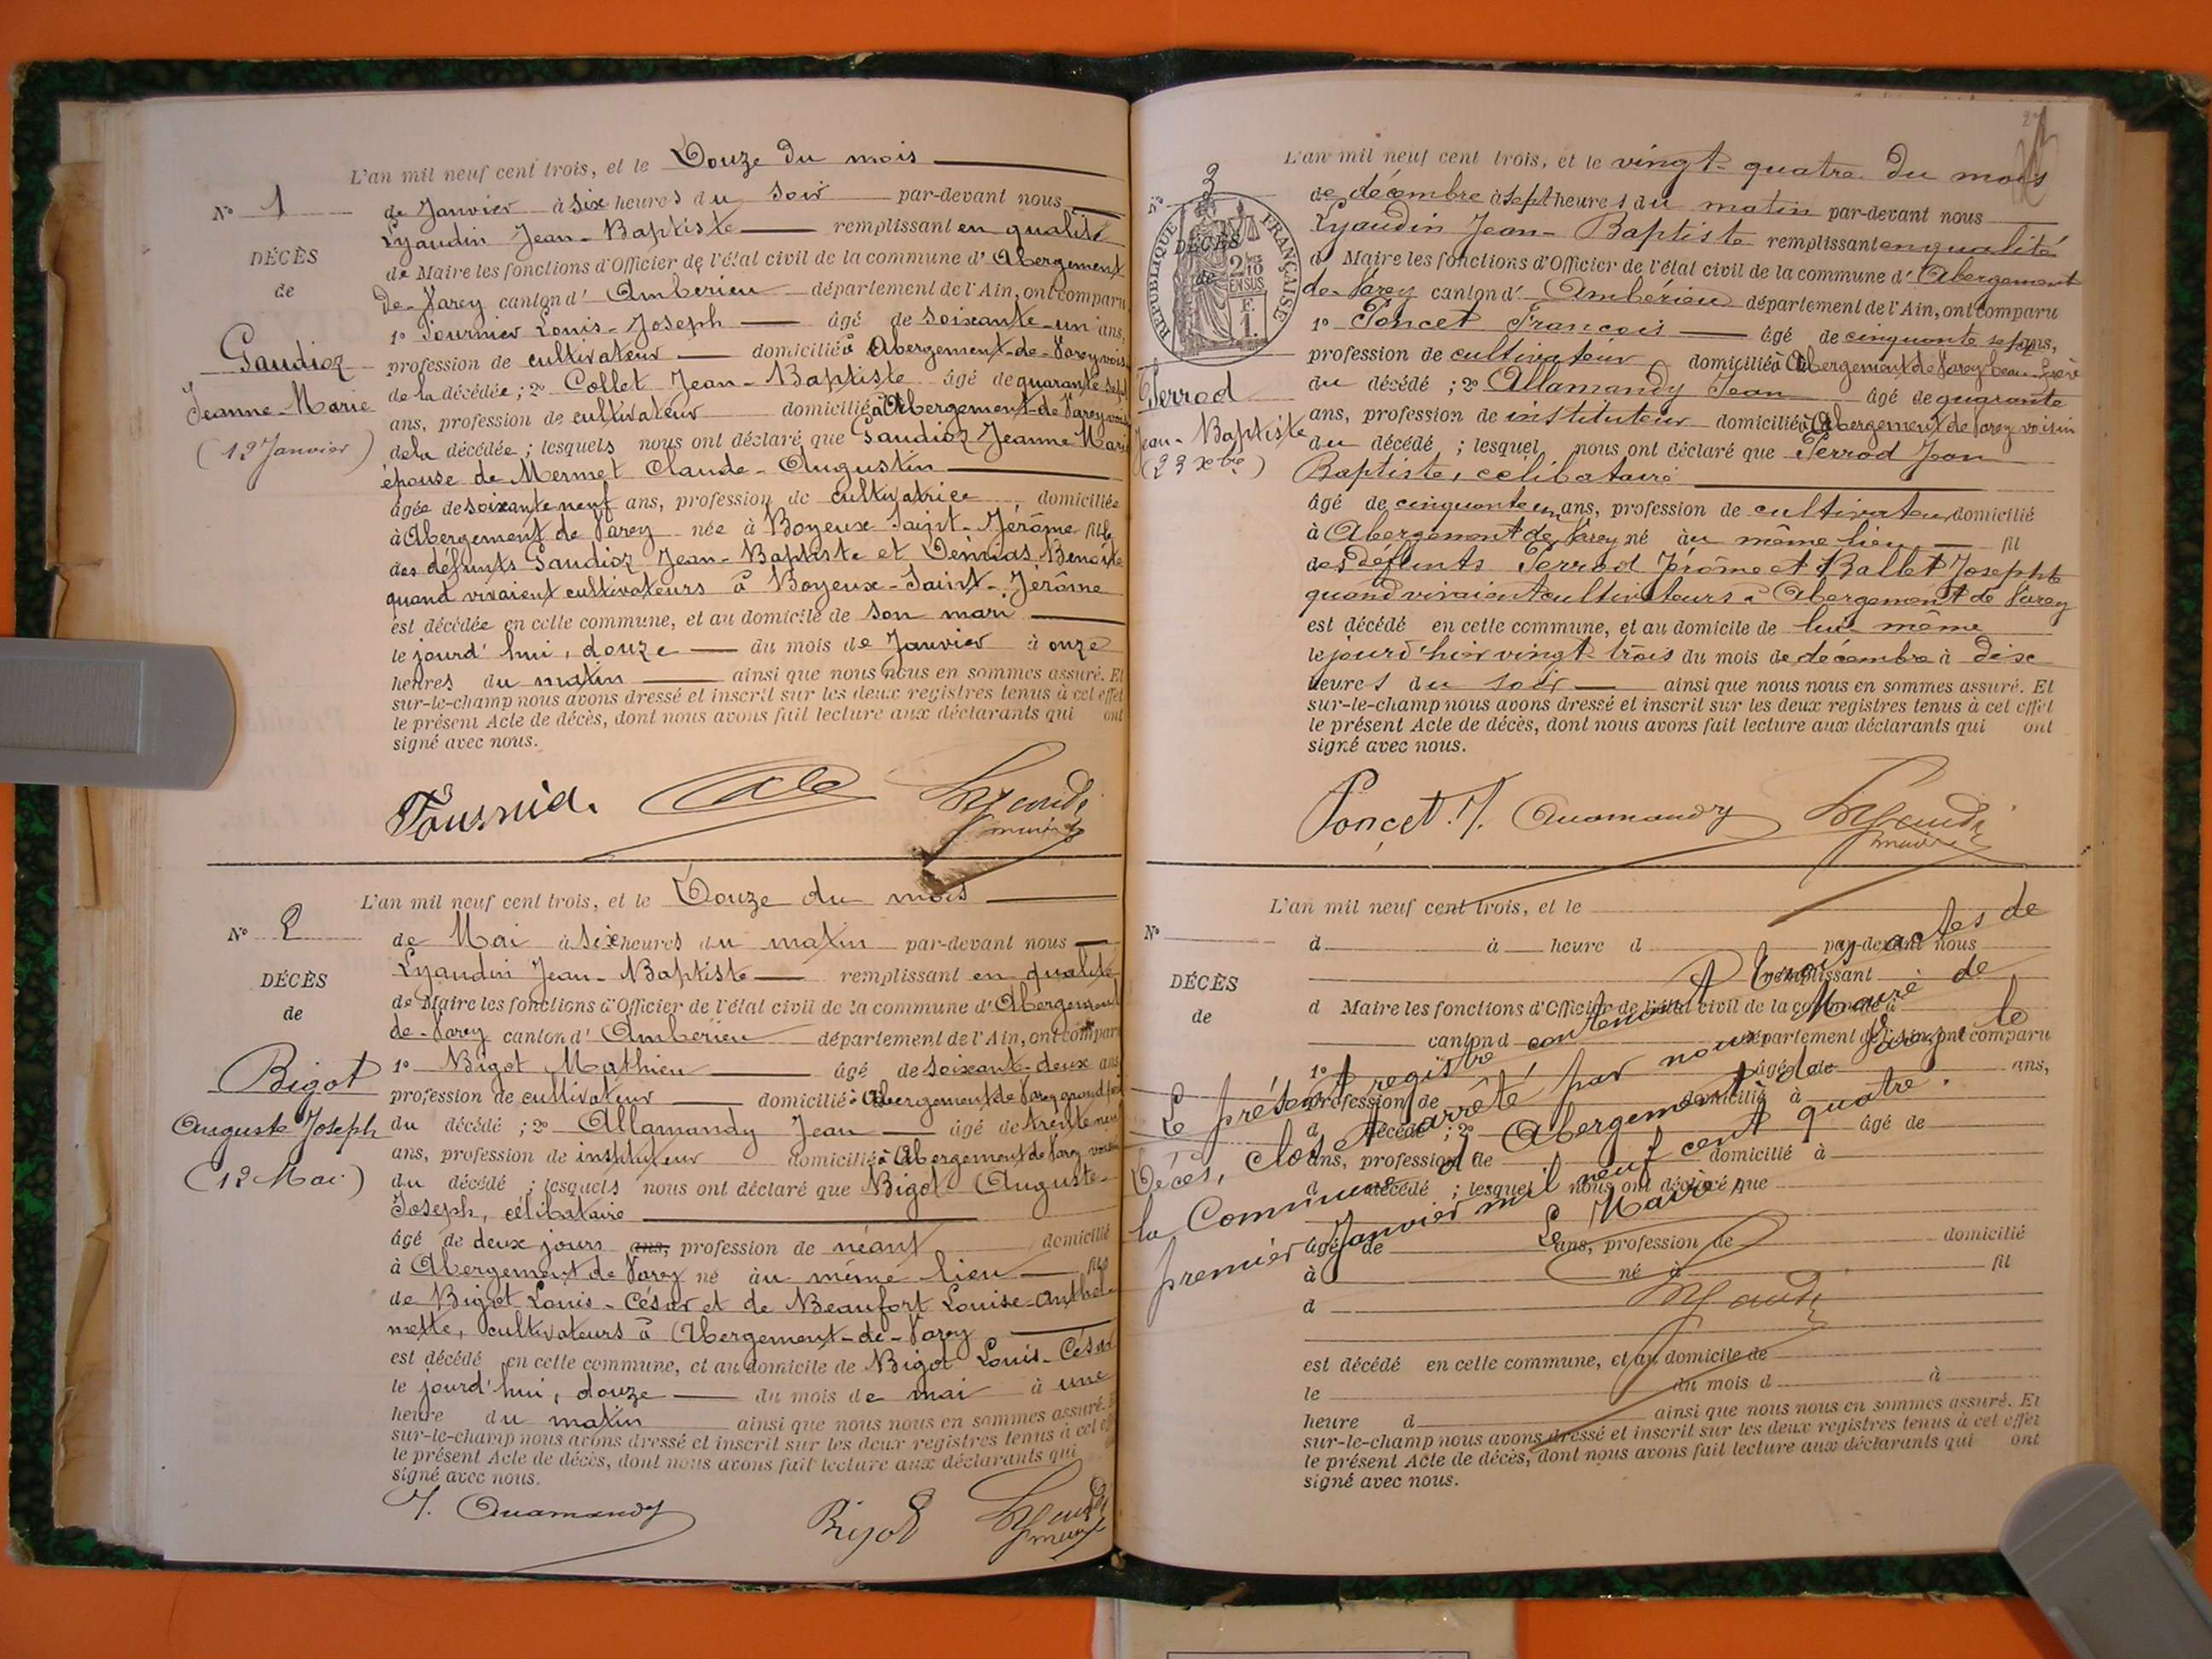 L'an mil neuf cent trois, et le Douze du mois
N° 1
de Janvier à six heures du soir par-devant nous
Lyaudin Jean-Baptiste remplissant en qualité
DÉCÈS
de Maire les fonctions d'Officier de l'état civil de la commune d'Abergement
de
de-Varey canton d'Ambérieu département de l'Ain, ont comparu
1° Fournier Louis-Joseph âgé de soixante-un ans,
Gaudioz
profession de cultivateur domicilié à Abergement-de-Varey voisin
de la décédée ; 2° Collet Jean-Baptiste âgé de quarante-sept
Jeanne-Marie
ans, profession de cultivateur domicilié à Abergement-de-Varey voisin
(12 Janvier)
de la décédée ; lesquels nous ont déclaré que Gaudioz Jeanne Marie
épouse de Mermet Claude-Augustin
âgée de soixante neuf ans, profession de cultivatrice domiciliée
à Abergement de Varey née à Boyeux-Saint-Jérôme fille
des défunts Gaudioz Jean-Baptiste et Benoite
quand vivaient cultivateurs à Boyeux-Saint-Jérôme
est décédée en cette commune, et au domicile de son mari
le jourd'hui, douze du mois de Janvier à onze
heures du matin ainsi que nous nous en sommes assuré. Et
sur-le-champ nous avons dressé et inscrit sur les deux registres tenus à cet effet
le présent Acte de décès, dont nous avons fait lecture aux déclarants qui ont
signé avec nous.
Fournier
Lyaudin
maire
L'an mil neuf cent trois, et le Douze du mois
N° 2
de Mai à six heures du matin par-devant nous
Lyaudin Jean-Baptiste remplissant en qualité
DÉCÈS
de Maire les fonctions d'Officier de l'état civil de la commune d'Abergement
de
de-Varey canton d'Ambérieu département de l'Ain, ont comparu
1° Bigot Mathieu âgé de soixante-deux ans
Bigot
profession de cultivateur domicilié à Abergement de Varey grand père
Auguste Joseph
du décédé ; 2° Allamandy Jean âgé de trente neuf
ans, profession de instituteur domicilié à Abergement de Varey voisin
(12 Mai)
du décédé ; lesquels nous ont déclaré que Bigot Auguste-
Joseph, célibataire
âgé de deux jours ans, profession de néant domicilié
à Abergement de Varey né au même lieu fils
de Bigot Louis-César et de Beaufort Louise-Anthel-
mette, cultivateurs à Abergement-de-Varey
est décédé en cette commune, et au domicile de Bigot Louis-César
le jourd'hui, douze du mois de mai à une
heure du matin ainsi que nous nous en sommes assuré. Et
sur-le-champ nous avons dressé et inscrit sur les deux registres tenus à cet effet
le présent Acte de décès, dont nous avons fait lecture aux déclarants qui
signé avec nous.
J. Allamandy Bigot Lyaudin
maire
L'an mil neuf cent trois, et le vingt-quatre du mois
N° 3
de décembre à sept heures du matin par-devant nous
Lyaudin Jean-Baptiste remplissant en qualité
RÉPUBLIQUE FRANÇAISE
2/10 EN SUS
F.
1.
DÉCÈS
de
d Maire les fonctions d'Officier de l'état civil de la commune d'Abergement
de-Varey canton d'Ambérieu département de l'Ain, ont comparu
1° Poncet François âgé de cinquante sept ans,
profession de cultivateur domicilié à Abergement de Varey beau-frère
Perrod
du décédé ; 2° Allamandy Jean âgé de quarante
Jean-Baptiste
ans, profession de instituteur domicilié à Abergement de Varey voisin
(23 Xbre)
du décédé ; lesquel nous ont déclaré que Perrod Jean
Baptiste, célibataire
âgé de cinquante un ans, profession de cultivateur domicilié
à Abergement de Varey né au même lieu fil
des défunts Perrod Jérôme et Ballet Josephte
quand vivaient cultivateurs à Abergement de Varey
est décédé en cette commune, et au domicile de lui-même
le jour d'hier vingt-trois du mois de décembre à dix
heures du soir ainsi que nous nous en sommes assuré. Et
sur-le-champ nous avons dressé et inscrit sur les deux registres tenus à cet effet
le présent Acte de décès, dont nous avons fait lecture aux déclarants qui ont
signé avec nous.
Poncet F. Allamandy Lyaudin
maire
L'an mil neuf cent trois, et le
N°
d à heure d par-devant nous
remplissant
DÉCÈS
d Maire les fonctions d'Officier de l'état civil de la commune d
de
canton d département de l'Ain, ont comparu
1° âgé de ans,
profession de domicilié à
d décédé ; 2° âgé de
ans, profession de domicilié à
d décédé ; lesquel nous ont déclaré que
âgé de ans, profession de domicilié
à né à fil
d
est décédé en cette commune, et au domicile de
le du mois d à
heure d ainsi que nous nous en sommes assuré. Et
sur-le-champ nous avons dressé et inscrit sur les deux registres tenus à cet effet
le présent Acte de décès, dont nous avons fait lecture aux déclarants qui ont
signé avec nous.
Le présent registre contenant trois actes de
Décès, clos et arrêté par nous Maire de
la Commune d'Abergement de Varey le
premier Janvier mil neuf cent quatre.
Le Maire,
Lyaudin